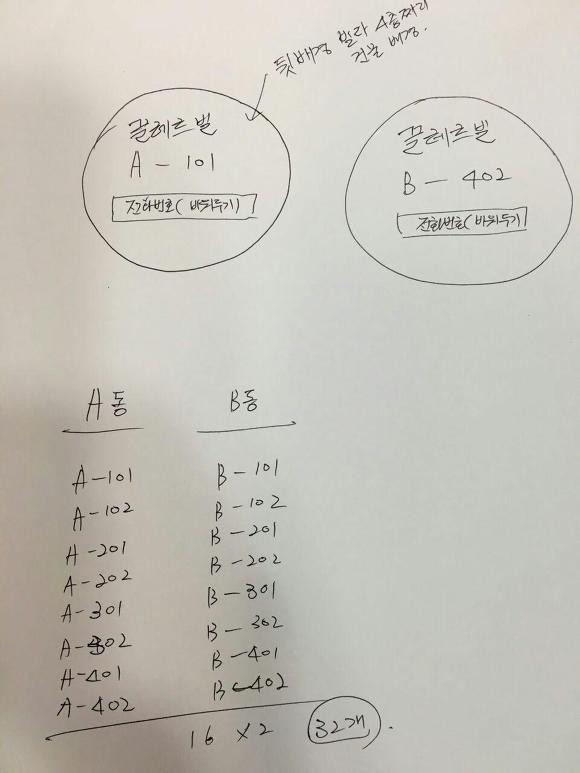 뒷배경 빌라 4층짜리
건물 배경.
끌레르빌
A - 101
전화번호( 바뀌두기)
끌레르빌
B - 402
전화번호( 바뀌두기)
A동
B동
A-101
B-101
A-102
B-102
A-201
B-201
A-202
B-202
A-301
B-301
A-302
B-302
A-401
B-401
A-402
B-402
16 x2 32개.